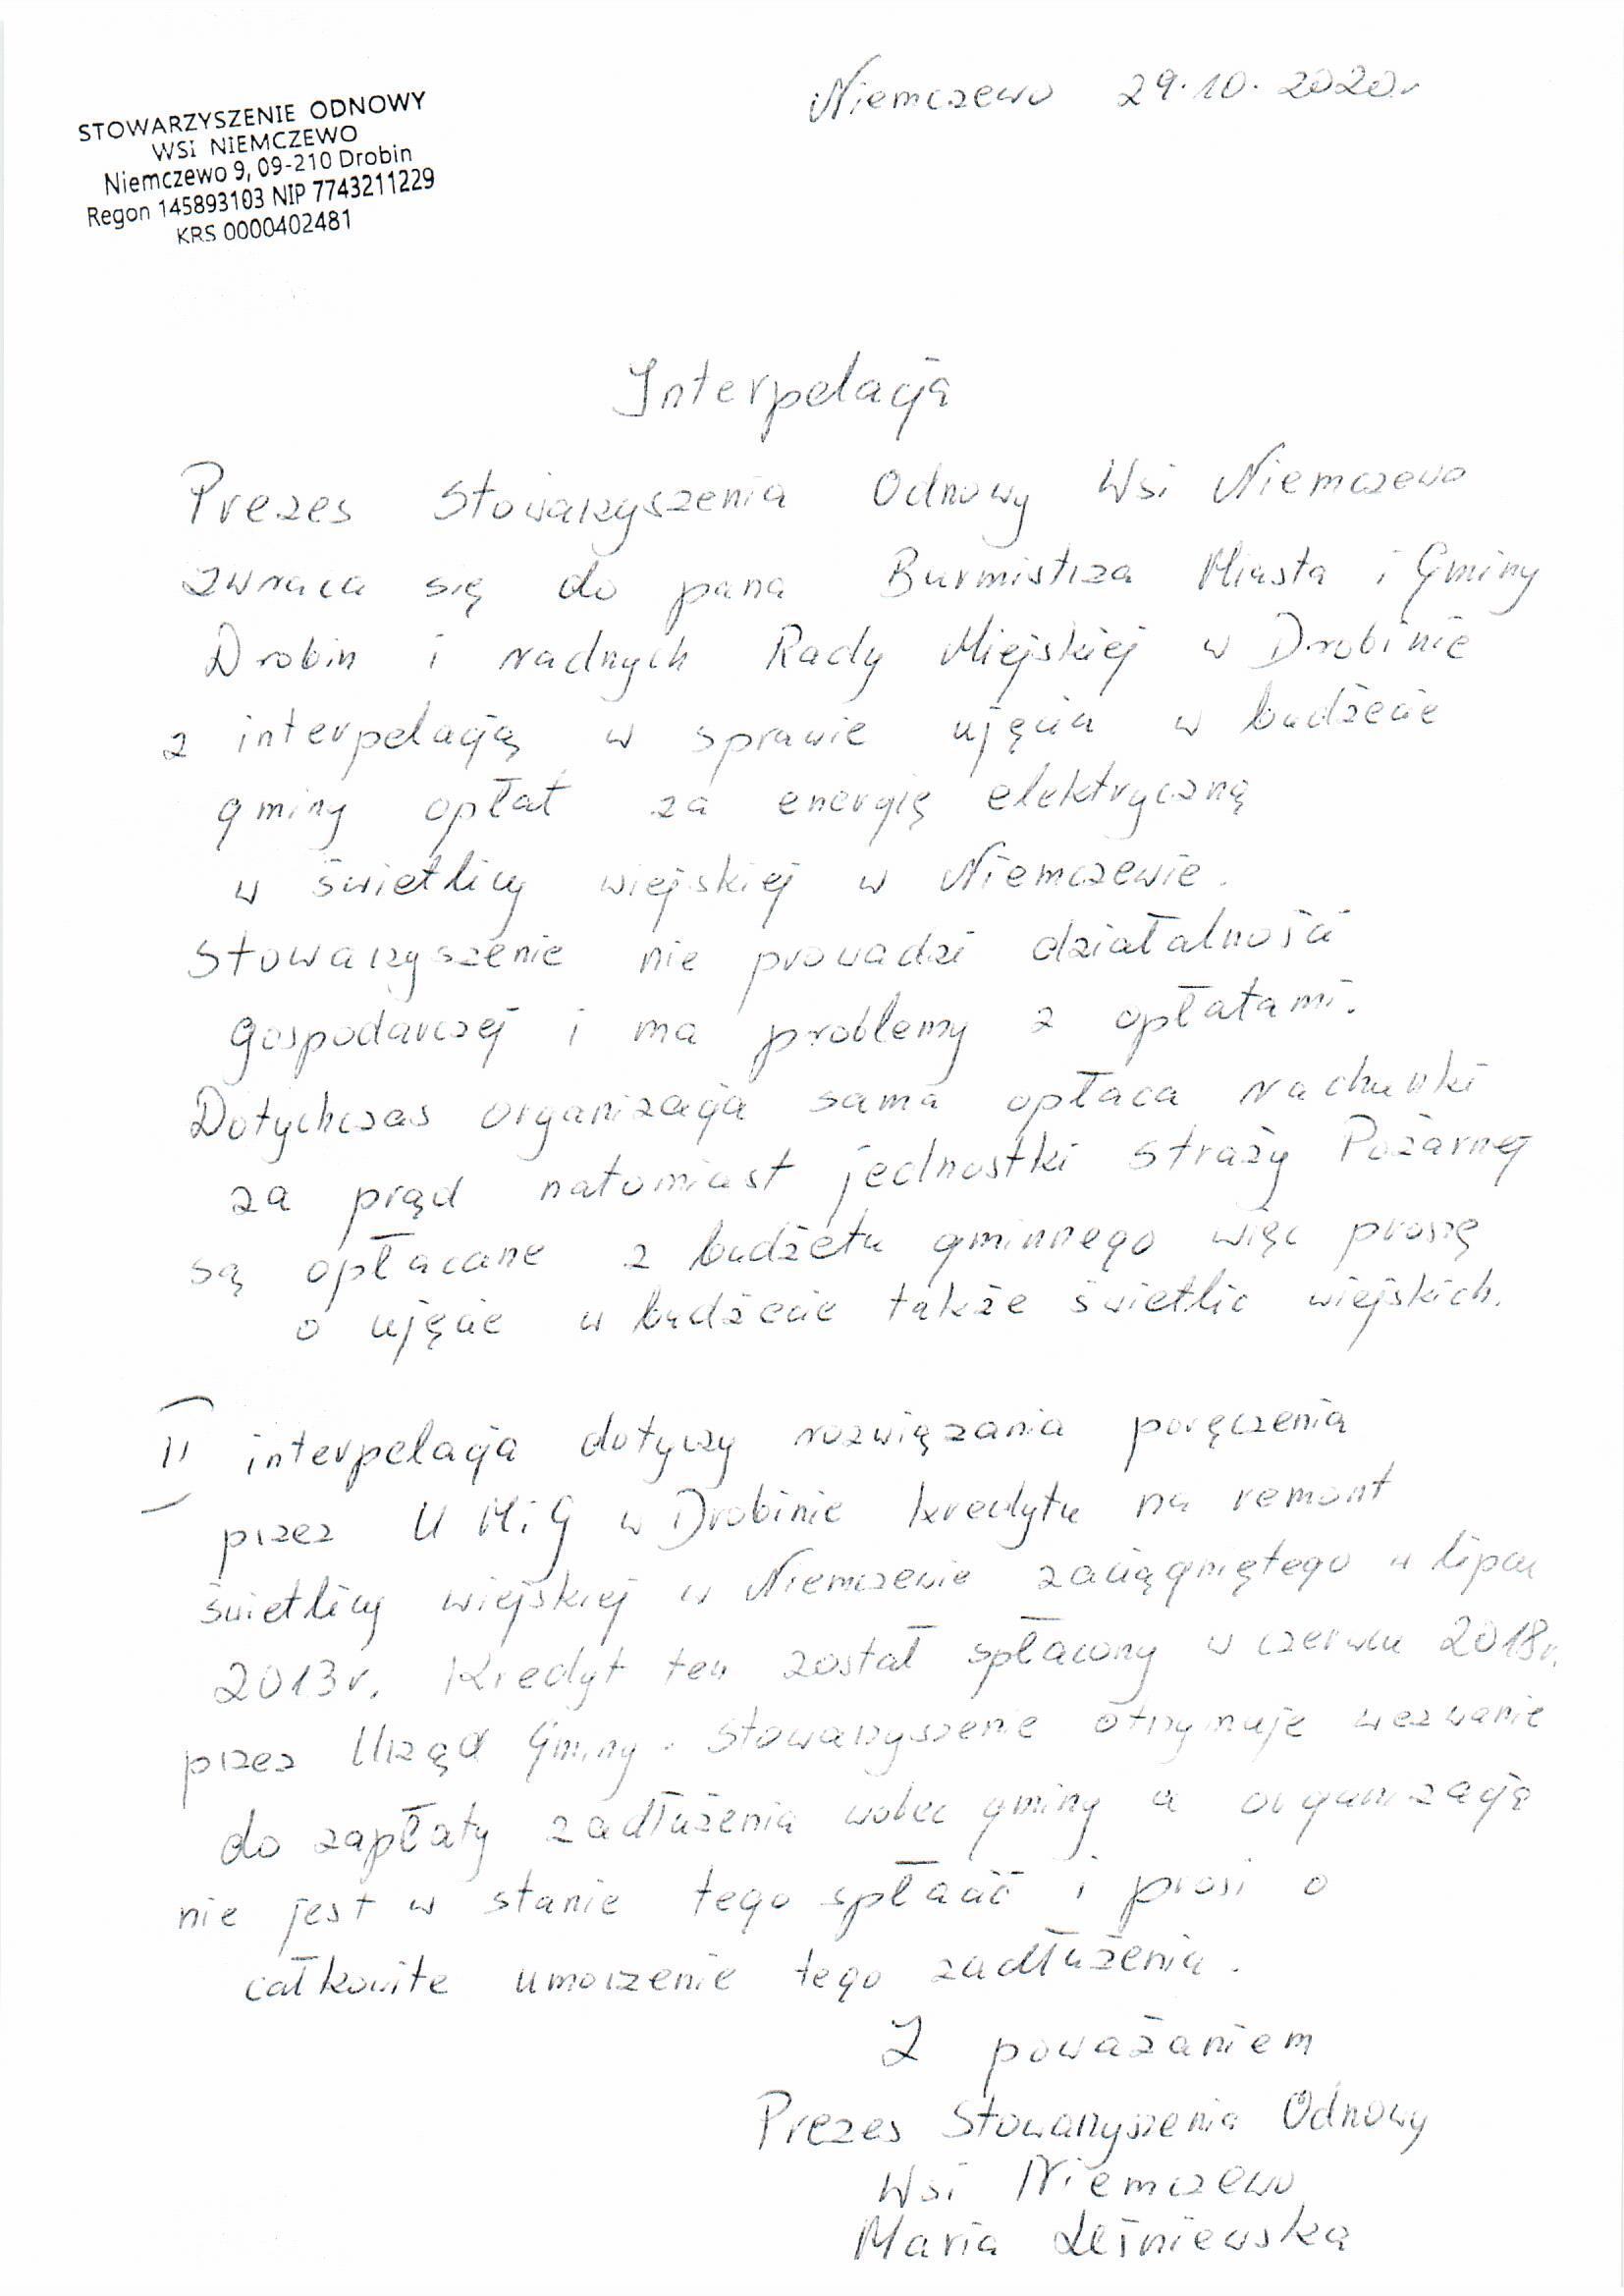 Niemczewo 29.10.2020r
STOWARZYSZENIE ODNOWY
WSI NIEMCZEWO
Niemczewo 9, 09-210 Drobin
Regon 145893103 NIP 7743211229
KRS 0000402481
Interpelacja
Prezes Stowarzyszenia Odnowy Wsi Niemczewo
zwraca się do pana Burmistrza Miasta i Gminy
Drobin i radnych Rady Miejskiej w Drobinie
z interpelacją w sprawie ujęcia w budżecie
gminy opłat za energię elektryczną
w świetlicy wiejskiej w Niemczewie.
Stowarzyszenie nie prowadzi działalność
gospodarczej i ma problemy z opłatami.
Dotychczas organizacja sama opłaca rachunki
za prąd natomiast jednostki Straży Pożarnej
są opłacane z budżetu gminnego więc proszę
o ujęcie w budżecie także świetlic wiejskich.
II interpelacja dotyczy rozwiązania poręczenia
przez U M i G w Drobinie kredytu na remont
świetlicy wiejskiej w Niemczewie zaciągniętego w lipcu
2013r. Kredyt ten został spłacony w czerwcu 2018r.
przez Urząd Gminy. Stowarzyszenie otrzymuje wezwanie
do zapłaty zadłużenia wobec gminy a organizacja
nie jest w stanie tego spłacić i prosi o
całkowite umorzenie tego zadłużenia.
Z poważaniem
Prezes Stowarzyszenia Odnowy
Wsi Niemczewo
Maria Leśniewska